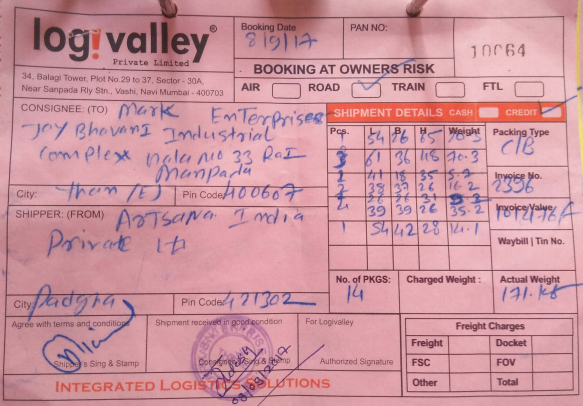 logivalley®
Private Limited
34, Balagi Tower, Plot No.29 to 37, Sector - 30A,
Near Sanpada Rly Stn., Vashi, Navi Mumbai - 400703
Booking Date
8/9/17
PAN NO:
10064
BOOKING AT OWNERS RISK
AIR ROAD TRAIN FTL
CONSIGNEE: (TO) Mark Enterprises
Jay Bhavani Industrial
Complex nala no 33
Manpada
City: Than (E) Pin Code 400607
SHIPPER: (FROM) Artsana India
Private
City Padgha Pin Code 421302
SHIPMENT DETAILS CASH CREDIT
Pcs. L B H Weight Packing Type
54 26 65
3 61 36 45 70.3 C/B
1 41 18 35
2 38 37 26 Invoice No.
26 26 31 2396
39 39 26 35.2 Invoice/Value
1 54 42 28 14.1
Waybill | Tin No.
No. of PKGS: Charged Weight : Actual Weight
14
Agree with terms and conditions
Shipper's Sing & Stamp
Shipment received in good condition
Consignee's Sing & Stamp
08/09/2017
For Logivalley
Authorized Signature
Freight Charges
Freight Docket
FSC FOV
Other Total
INTEGRATED LOGISTICS SOLUTIONS